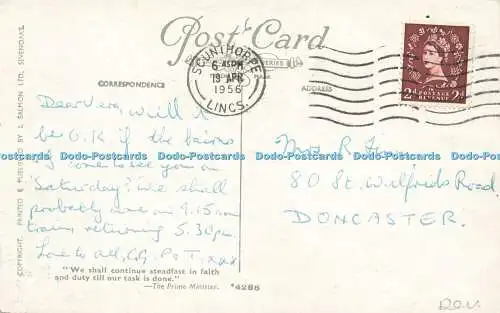 Post Card
SCUNTHORPE
6 45PM
19 APR
1956
LINCS.
CORRESPONDENCE
ADDRESS
POSTAGE
REVENUE
2d 2d
COPYRIGHT. PRINTED & PUBLISHED BY J. SALMON LTD., SEVENOAKS.
Dear Vera, Will it
be O.K if the bairns
& I come to see you on
Saturday? We shall
probably come on 9.15
train returning 5.30pm.
Love to all, P. T. xxx
Mrs R
80 St. Wilfrids Road
DONCASTER.
"We shall continue steadfast in faith
and duty till our task is done."
—The Prime Minister.
*4288
Dodo-Postcards Dodo-Postcards Dodo-Postcards Dodo-Postcards